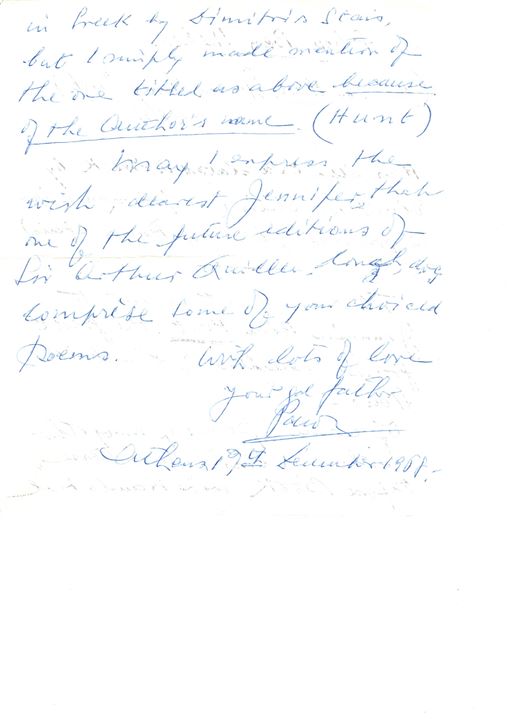 in Greek by Dimitris Stais,
but I simply made mention of
the one titled as above because
of the Author's name. (Hunt)
May I express the
wish, dearest Jennifer, that
one of the future editions of
Sir Arthur Quiller
comprise some of your choiced
poems. With lots of love
your father
Athens, December 1988.